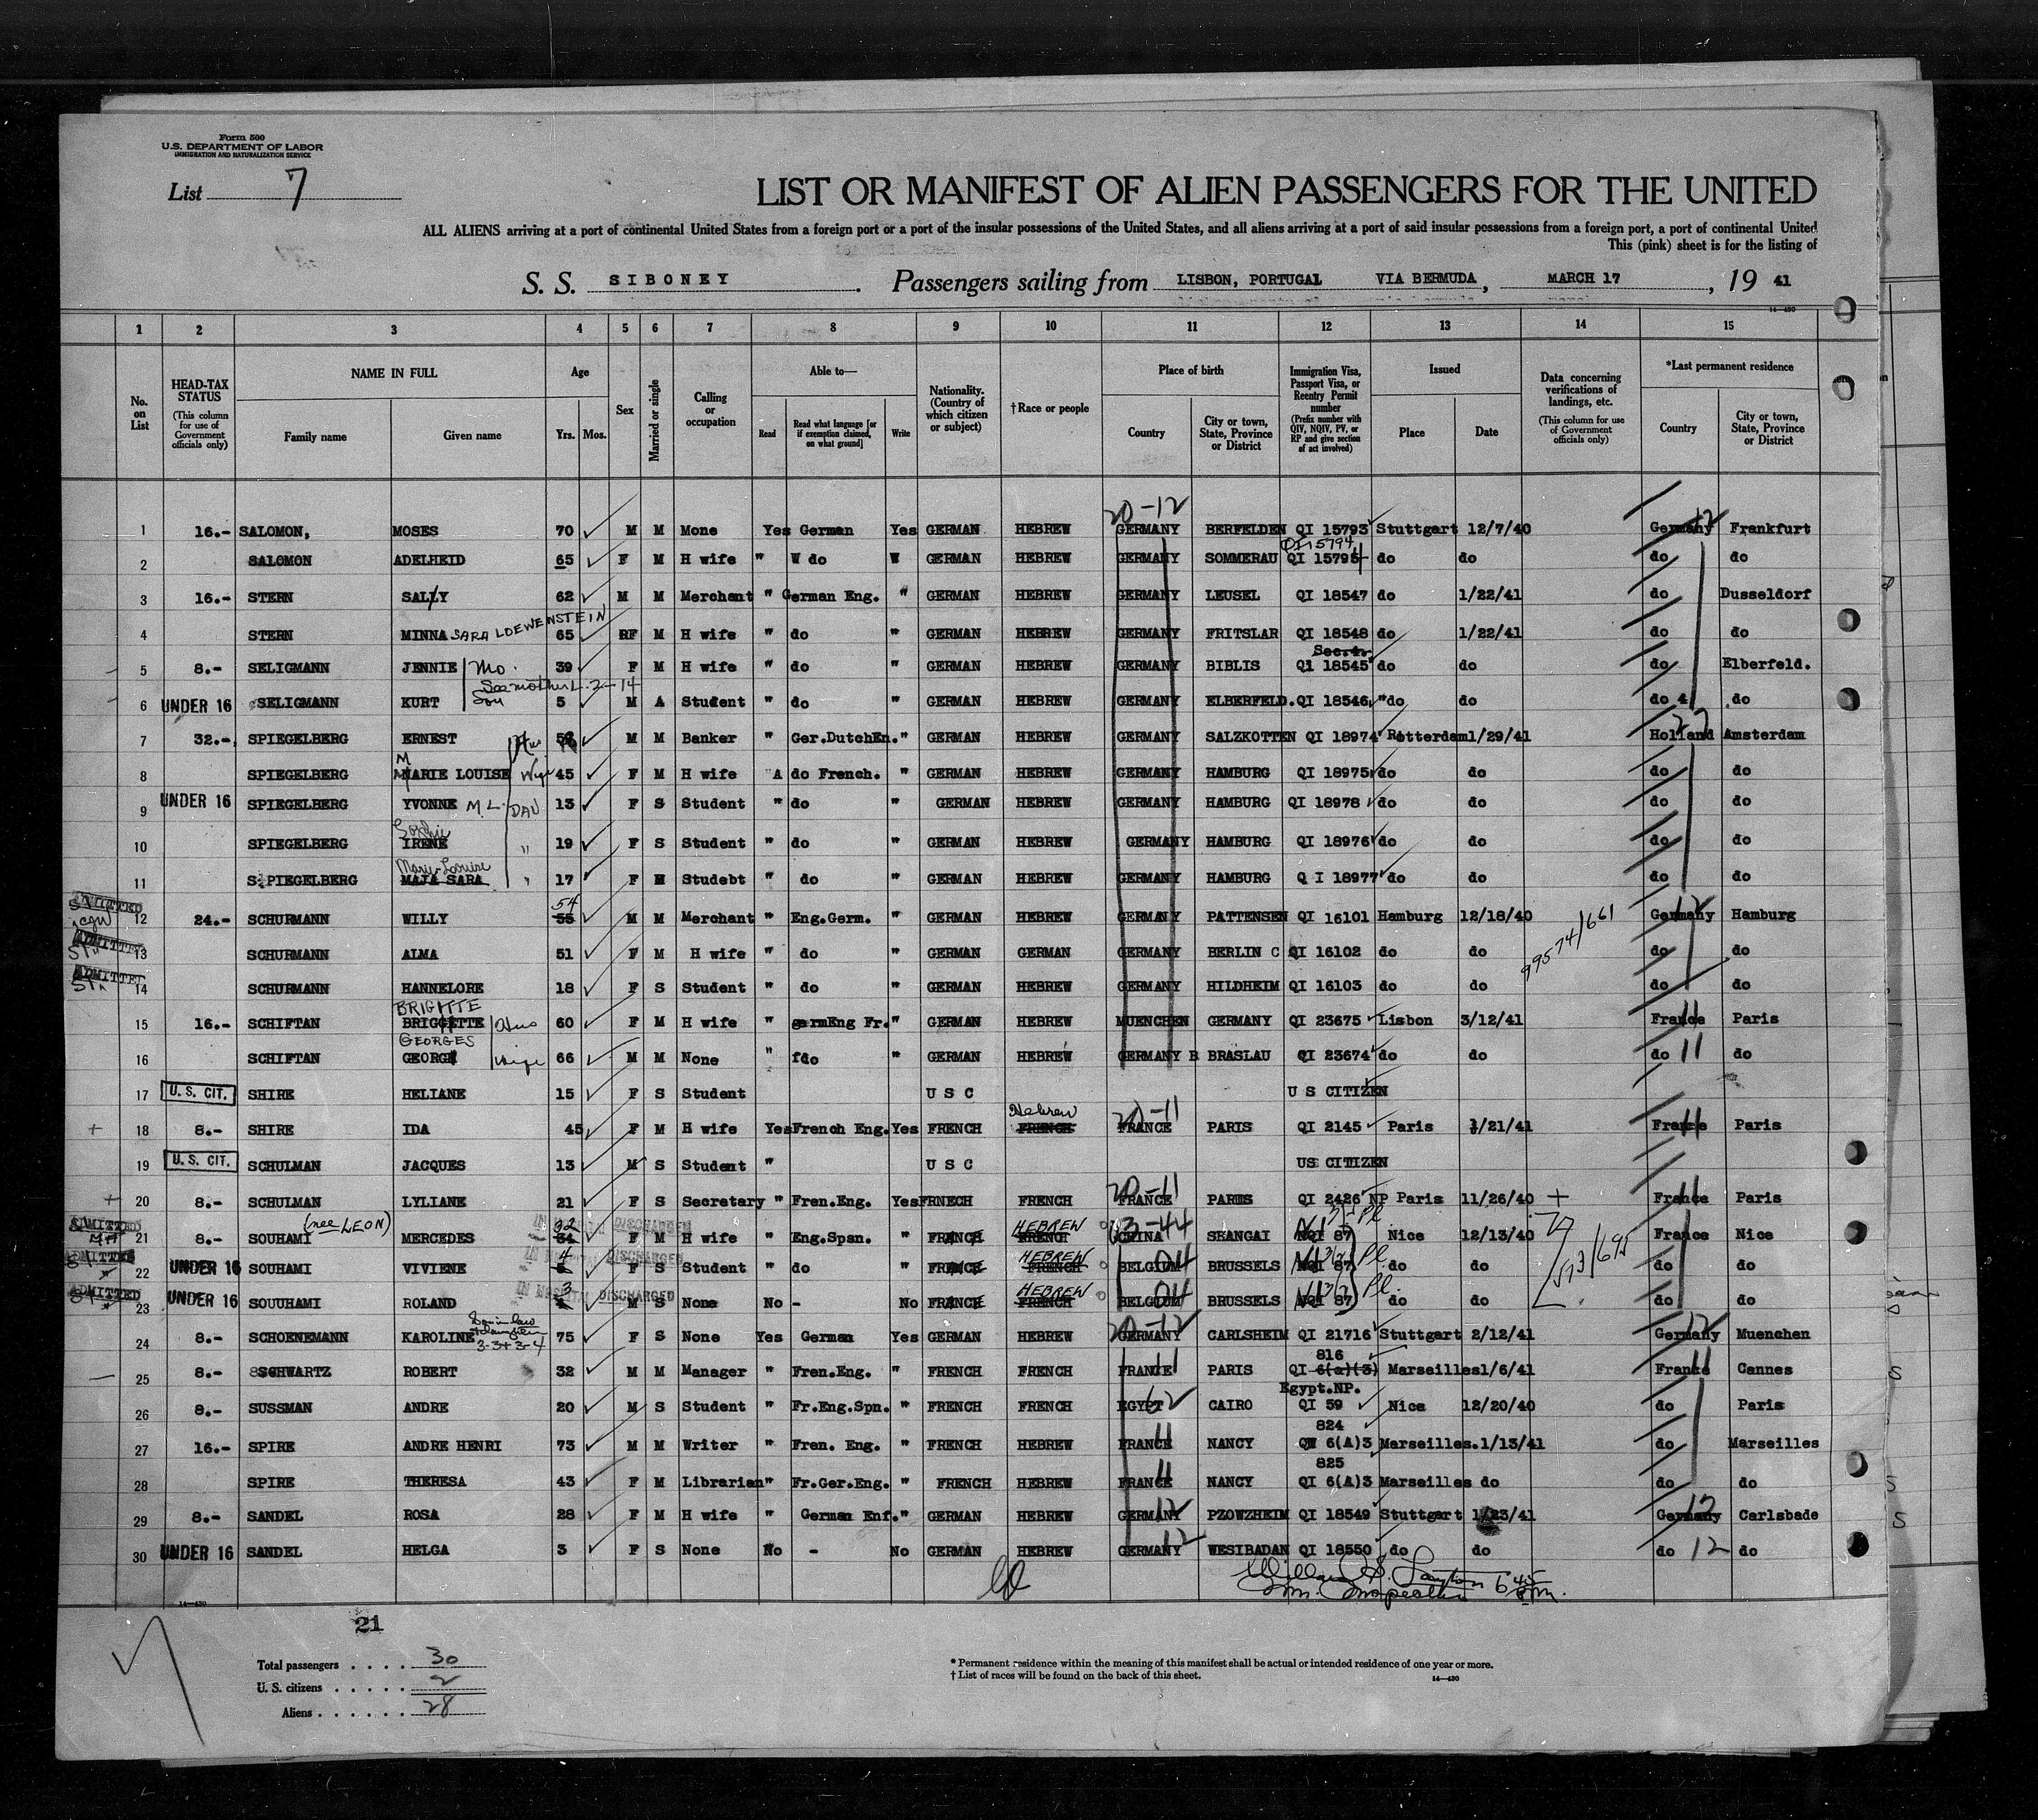 Form 500
U.S. DEPARTMENT OF LABOR
IMMIGRATION AND NATURALIZATION SERVICE
List 7
LIST OR MANIFEST OF ALIEN PASSENGERS FOR THE UNITED
ALL ALIENS arriving at a port of continental United States from a foreign port or a port of the insular possessions of the United States, and all aliens arriving at a port of said insular possessions from a foreign port, a port of continental United
This (pink) sheet is for the listing of
S. S. SIBONEY. Passengers sailing from LISBON, PORTUGAL VIA BERMUDA, MARCH 17, 19 41
14—430
1 2 3 4 5 6 7 8 9 10 11 12 13 14 15
No. on List
HEAD-TAX STATUS (This column for use of Government officials only)
NAME IN FULL Family name Given name
Age Yrs. Mos.
Sex
Married or single
Calling or occupation
Able to— Read Read what language [or if exemption claimed, on what ground] Write
Nationality. (Country of which citizen or subject)
† Race or people
Place of birth Country City or town, State, Province or District
Immigration Visa, Passport Visa, or Reentry Permit number (Prefix number with QIV, NQIV, PV, or RP and give section of act involved)
Issued Place Date
Data concerning verifications of landings, etc. (This column for use of Government officials only)
*Last permanent residence Country City or town, State, Province or District
20-12
1 16.- SALOMON, MOSES 70 M M Mone Yes German Yes GERMAN HEBREW GERMANY BERFELDEN QI 15793 Stuttgart 12/7/40 Germany 12 Frankfurt
QI 15794
2 SALOMON ADELHEID 65 F M H wife " W do W GERMAN HEBREW GERMANY SOMMERAU QI 15795 do do do do
3 16.- STERN SALLY 62 M M Merchant " German Eng. " GERMAN HEBREW GERMANY LEUSEL QI 18547 do 1/22/41 do Dusseldorf
4 STERN MINNA SARA LOEWENSTEIN 65 F M H wife " do " GERMAN HEBREW GERMANY FRITSLAR QI 18548 do 1/22/41 do do
5 8.- SELIGMANN JENNIE Mo. 39 F M H wife " do " GERMAN HEBREW GERMANY BIBLIS Qi 18545 do do do Elberfeld.
See mother L. 2-14
6 UNDER 16 SELIGMANN KURT Son 5 M A Student " do " GERMAN HEBREW GERMANY ELBERFELD. QI 18546 "do do do 4 do
7 32.- SPIEGELBERG ERNEST M M Banker " Ger.DutchEn." GERMAN HEBREW GERMANY SALZKOTTEN QI 18974 Rotterdam1/29/41 Holland Amsterdam
8 SPIEGELBERG MARIE LOUISE Wife 45 F M H wife "A do French. " GERMAN HEBREW GERMANY HAMBURG QI 18975 do do do do
9 UNDER 16 SPIEGELBERG YVONNE M.L. DAU 13 F S Student " do " GERMAN HEBREW GERMANY HAMBURG QI 18978 do do do do
Sophie
10 SPIEGELBERG IRENE " 19 F S Student " do " GERMAN HEBREW GERMANY HAMBURG QI 18976 do do do do
Marie-Louise
11 SPIEGELBERG MAJA SARA " 17 F M Studebt " do " GERMAN HEBREW GERMANY HAMBURG Q I 18977 do do do do
ADMITTED 54
12 24.- SCHURMANN WILLY 55 M M Merchant " Eng.Germ. " GERMAN HEBREW GERMANY PATTENSEN QI 16101 Hamburg 12/18/40 99574/661 Germany 12 Hamburg
ADMITTED
13 SCHURMANN ALMA 51 F M H wife " do " GERMAN GERMAN GERMANY BERLIN C QI 16102 do do do do
ADMITTED
14 SCHURMANN HANNELORE 18 F S Student " do " GERMAN HEBREW GERMANY HILDHEIM QI 16103 do do do do
BRIGITTE
15 16.- SCHIFTAN BRIGGETTE 60 F M H wife " germEng Fr." GERMAN HEBREW MUENCHEN GERMANY QI 23675 Lisbon 3/12/41 France 11 Paris
GEORGES
16 SCHIFTAN GEORGE Wife 66 M M None " fdo " GERMAN HEBREW GERMANY B BRASLAU QI 23674 do do do 11 do
17 U. S. CIT. SHIRE HELIANE 15 F S Student U S C U S CITIZEN
Hebrew 20-11
18 8.- SHIRE IDA 45 F M H wife Yes French Eng. Yes FRENCH FRENCH FRANCE PARIS QI 2145 Paris 1/21/41 France 11 Paris
19 U. S. CIT. SCHULMAN JACQUES 13 M S Student " U S C US CITIZEN
20-11
20 8.- SCHULMAN LYLIANE 21 F S Secretary " Fren.Eng. Yes FRNECH FRENCH FRANCE PARIS QI 2426 NP Paris 11/26/40 + France 11 Paris
ADMITTED (nee LEON) 32 IN HOSPITAL DISCHARGED HEBREW 3-44
21 8.- SOUHAMI MERCEDES 34 F M H wife " Eng.Spsn. " FRANCE FRENCH CHINA SHANGAI NQI 87 Nice 12/13/40 France Nice
ADMITTED 4 IN HOSPITAL DISCHARGED HEBREW
22 UNDER 16 SOUHAMI VIVIENE F S Student " do " FRANCE FRENCH BELGIUM 04 BRUSSELS NQI 87 Pl. do do do do
ADMITTED 3 IN HOSPITAL DISCHARGED HEBREW
23 UNDER 16 SOUUHAMI ROLAND M S None No - No FRANCE FRENCH BELGIUM 04 BRUSSELS NQI 87 Pl. do do do do
Son in law & daughter 3-3+3-4 20-12
24 8.- SCHOENEMANN KAROLINE 75 F S None Yes German Yes GERMAN HEBREW GERMANY CARLSHEIM QI 21716 Stuttgart 2/12/41 Germany 12 Muenchen
816
25 8.- SCHWARTZ ROBERT 32 M M Manager " Fren.Eng. " FRENCH FRENCH FRANCE 11 PARIS QI 6(a)(3) Marseilles1/6/41 France 11 Cannes
Egypt.NP.
26 8.- SUSSMAN ANDRE 20 M S Student " Fr.Eng.Spn. " FRENCH FRENCH EGYPT 62 CAIRO QI 59 Nice 12/20/40 do Paris
824
27 16.- SPIRE ANDRE HENRI 73 M M Writer " Fren. Eng. " FRENCH HEBREW FRANCE 11 NANCY 6(A)3 Marseilles.1/13/41 do Marseilles
825
28 SPIRE THERESA 43 F M Librarian" Fr.Ger.Eng. " FRENCH HEBREW FRANCE 11 NANCY QI 6(A)3 Marseilles do do do
29 8.- SANDEL ROSA 28 F M H wife " German Enf." GERMAN HEBREW GERMANY 12 PZOWZHEIM QI 18549 Stuttgart 1/23/41 Germany 12 Carlsbade
30 UNDER 16 SANDEL HELGA 3 F S None No - No GERMAN HEBREW GERMANY 12 WESIBADAN QI 18550 do do do 12 do
14—430
21
Total passengers . . . . 30
U. S. citizens . . . . . 2
Aliens . . . . . . 28
* Permanent residence within the meaning of this manifest shall be actual or intended residence of one year or more.
† List of races will be found on the back of this sheet.
14—430